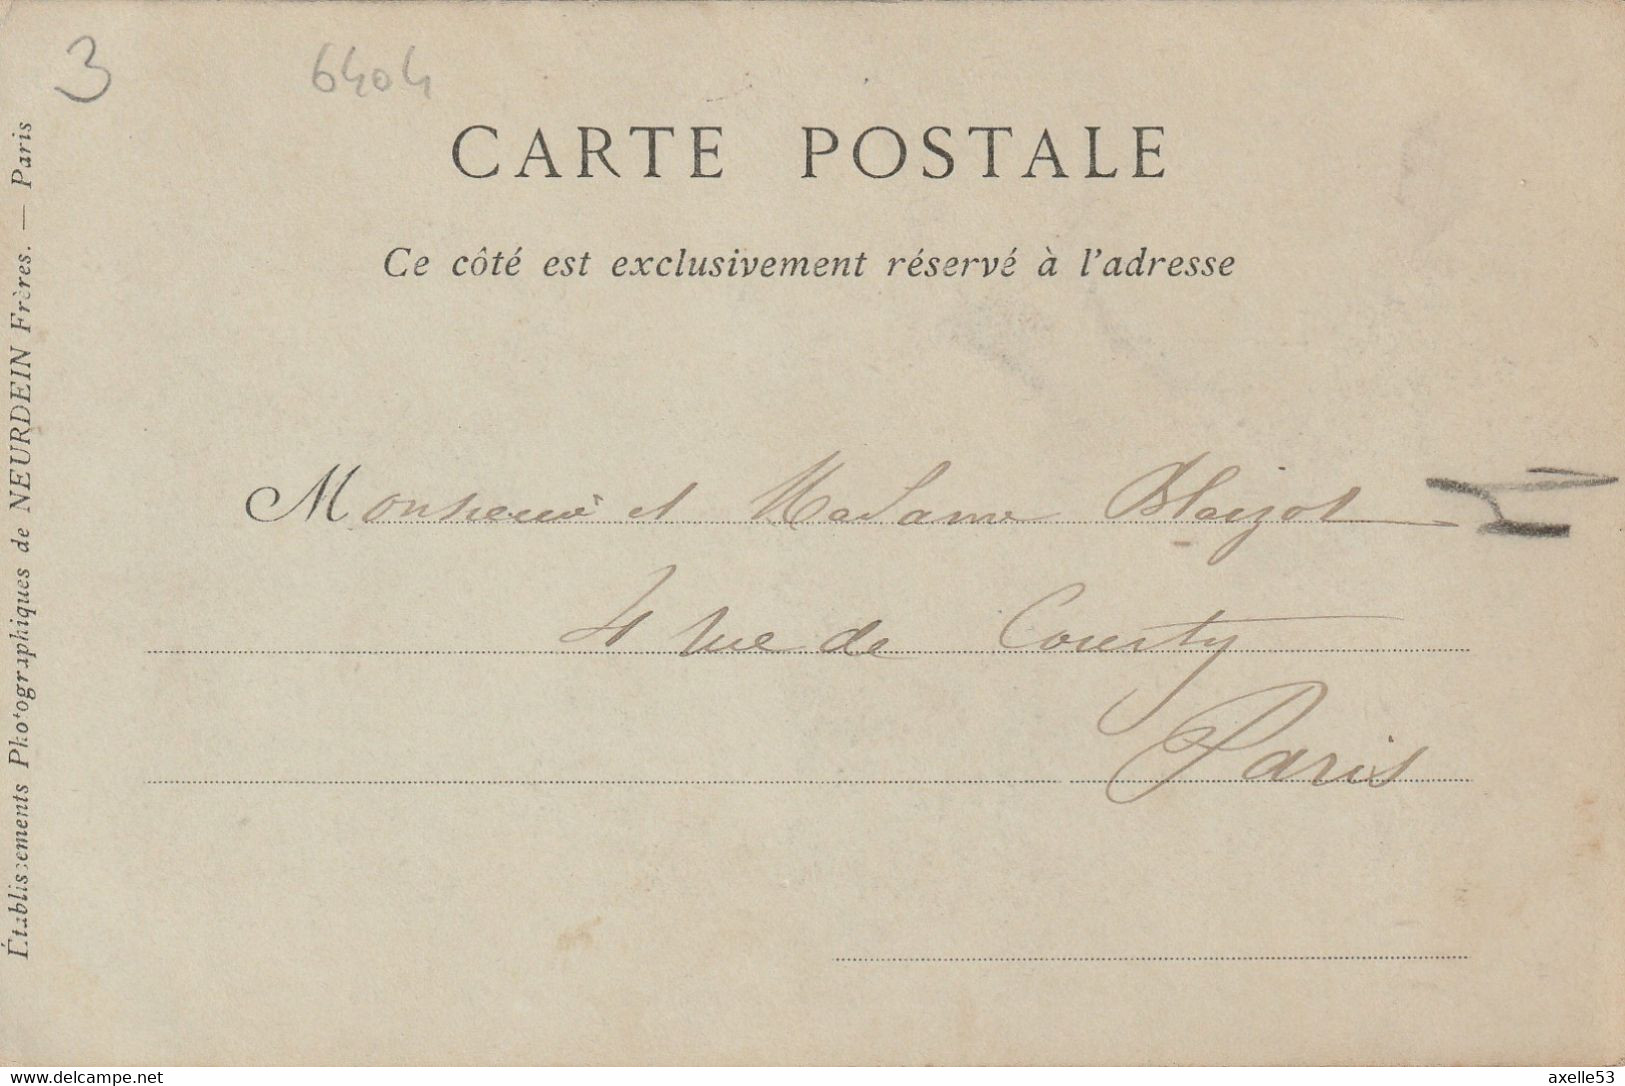 3
6404
CARTE POSTALE
Ce côté est exclusivement réservé à l'adresse
Monsieur et Madame Blaizot
4 rue de Courty
Paris
Établissements Photographiques de NEURDEIN Frères. — Paris
www.delcampe.net
axelle53